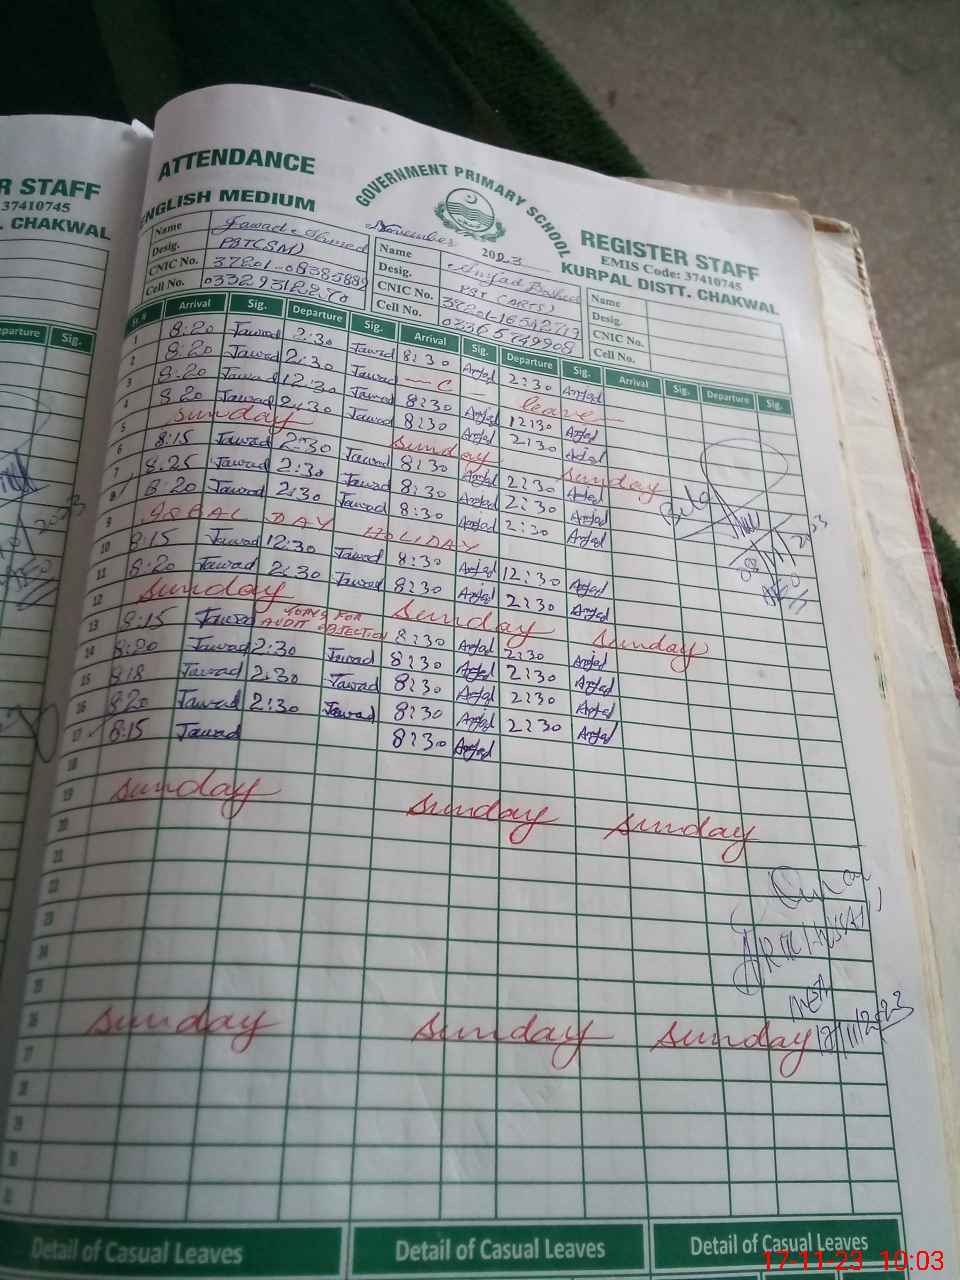 R STAFF
37410745
. CHAKWAL
parture Sig.
ATTENDANCE
ENGLISH MEDIUM
GOVERNMENT PRIMARY SCHOOL
REGISTER STAFF
EMIS Code: 37410745
KURPAL DISTT. CHAKWAL
November 2023
Name Jawad Ahmed
Desig. PST(SM)
CNIC No.
Cell No.
Name Amjad
Desig. PST (ARTS)
CNIC No.
Cell No.
Name
Desig.
CNIC No.
Cell No.
Arrival Sig. Departure Sig. Arrival Sig. Departure Sig. Arrival Sig. Departure Sig.
1 8:20 Jawad 2:30 Jawad 8:30 Amjad 2:30 Amjad
2 8:20 Jawad 2:30 Jawad — C — leave —
3 8:20 Jawad 12:30 Jawad 8:30 Amjad 12:30 Amjad
4 8:20 Jawad 2:30 Jawad 8:30 Amjad 2:30 Amjad
5 Sunday Sunday Sunday
6 8:15 Jawad 2:30 Jawad 8:30 Amjad 2:30 Amjad
7 8:25 Jawad 2:30 Jawad 8:30 Amjad 2:30 Amjad
8 8:20 Jawad 2:30 Jawad 8:30 Amjad 2:30 Amjad
9 IQBAL DAY HOLIDAY
10 8:15 Jawad 12:30 Jawad 8:30 Amjad 12:30 Amjad
11 8:20 Jawad 2:30 Jawad 8:30 Amjad 2:30 Amjad
12 Sunday Sunday Sunday
13 8:15 Jawad FOR AUDIT OBJECTION 8:30 Amjad 2:30 Amjad
14 8:20 Jawad 2:30 Jawad 8:30 Amjad 2:30 Amjad
15 8:18 Jawad 2:30 Jawad 8:30 Amjad 2:30 Amjad
16 8:20 Jawad 2:30 Jawad 8:30 Amjad 2:30 Amjad
17 8:15 Jawad 8:30 Amjad
18
19 Sunday Sunday Sunday
20
21
22
23
24
25
26 Sunday Sunday Sunday
27
28
29
30
31
Detail of Casual Leaves
Detail of Casual Leaves
Detail of Casual Leaves
17-11-23 10:03